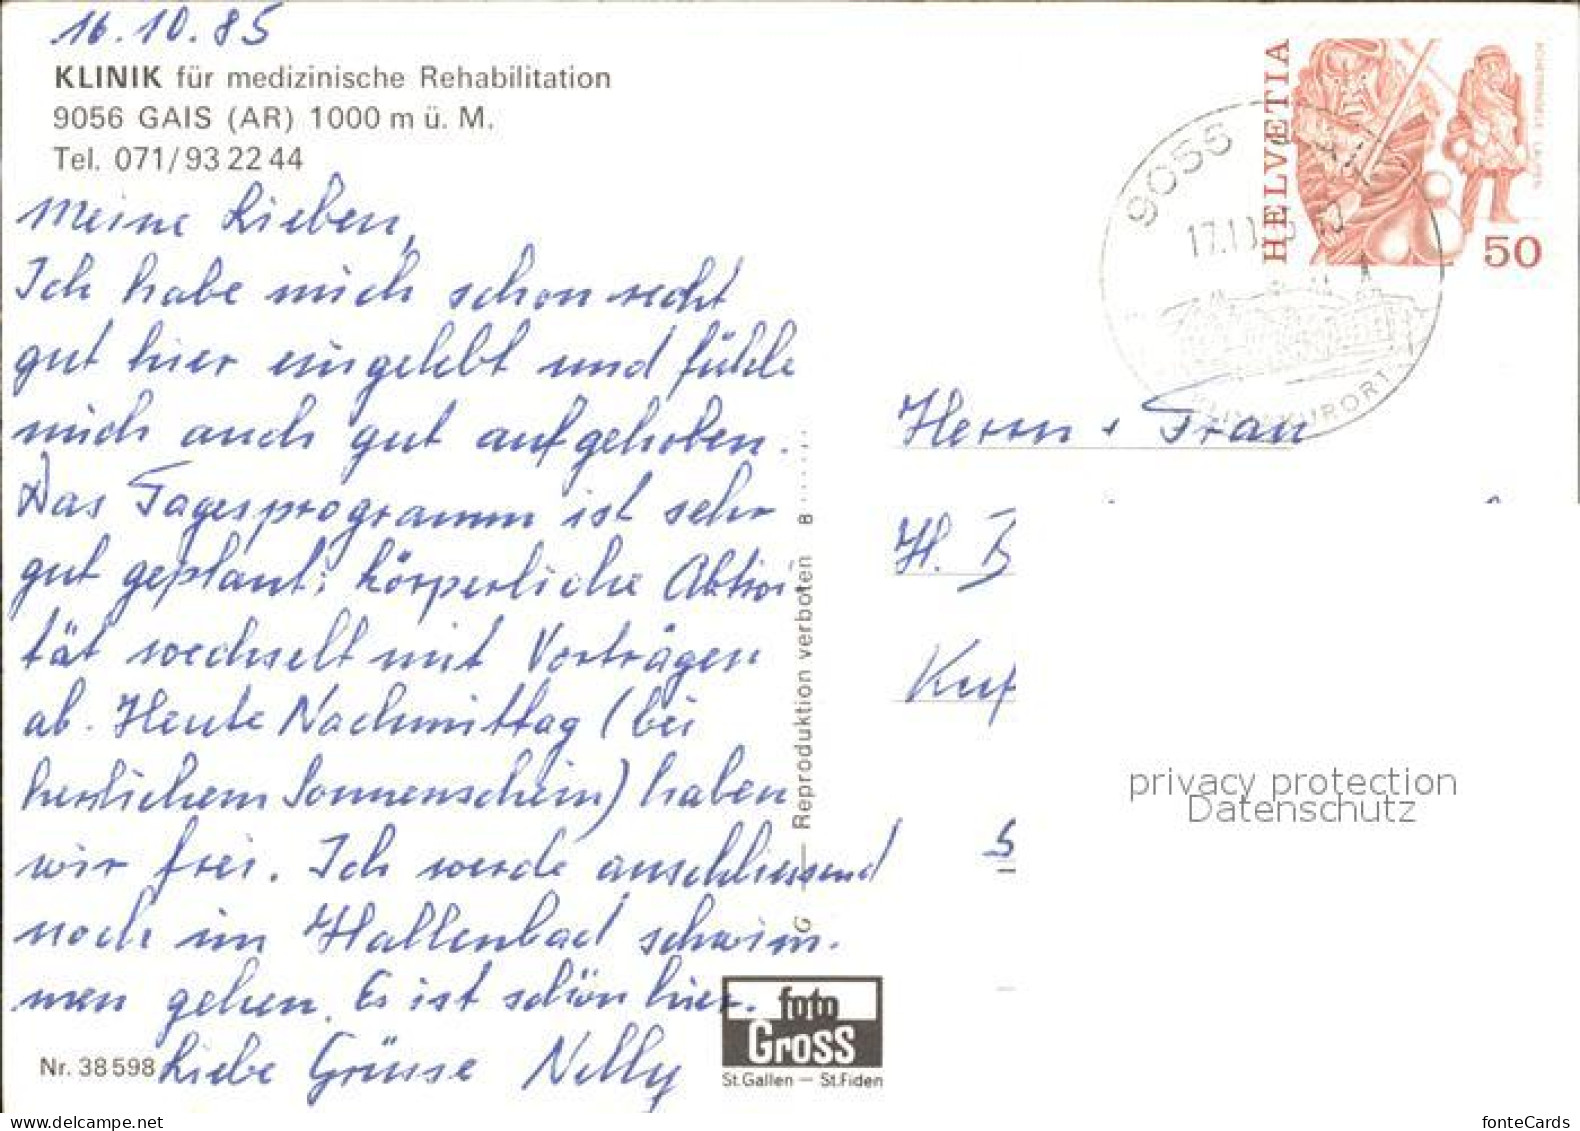 16.10.85
KLINIK für medizinische Rehabilitation
9056 GAIS (AR) 1000 m ü. M.
Tel. 071/93 22 44
Meine Lieben,
Ich habe mich schon recht
gut hier eingelebt und fühle
mich auch gut aufgehoben.
Das Tagesprogramm ist sehr
gut geplant; körperliche Aktivi
tät wechselt mit Vorträgen
ab. Heute Nachmittag (bei
herrlichem Sonnenschein) haben
wir frei. Ich werde anschliessend
noch im Hallenbad schwim-
men gehen. Es ist schön hier.
Liebe Grüsse Nelly
Nr. 38598
G — Reproduktion verboten B
foto
Gross
St.Gallen — St.Fiden
HELVETIA
50
9055
KURORT
Herrn + Frau
H. B
privacy protection
Datenschutz
www.delcampe.net
fonteCards